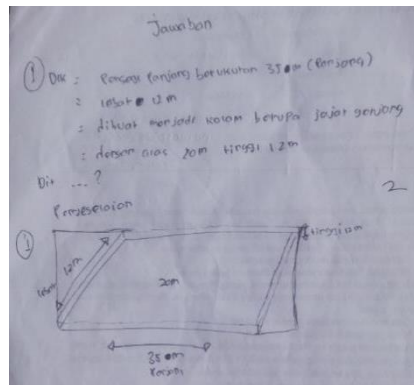 Jawaban
① Dik : Persegi Panjang berukuran 35 m (Panjang)
= lebar 12 m
: dibuat menjadi kolam berupa jajar genjang
: dengan alas 20m tinggi 12m
Dit ... ?
2
Penyelesaian
①
12m
20m
35 m